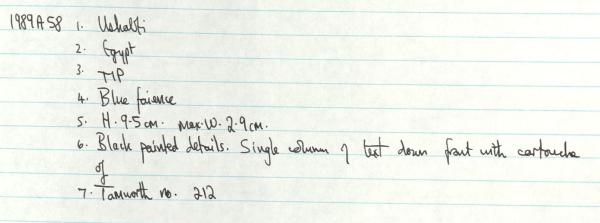 1989A58 1. Ushabti
2. Egypt
3. TIP
4. Blue faience
5. H. 9.5cm. max. W. 2.9cm.
6. Black painted details. Single column of text down front with cartouche
of
7. Tamworth no. 212